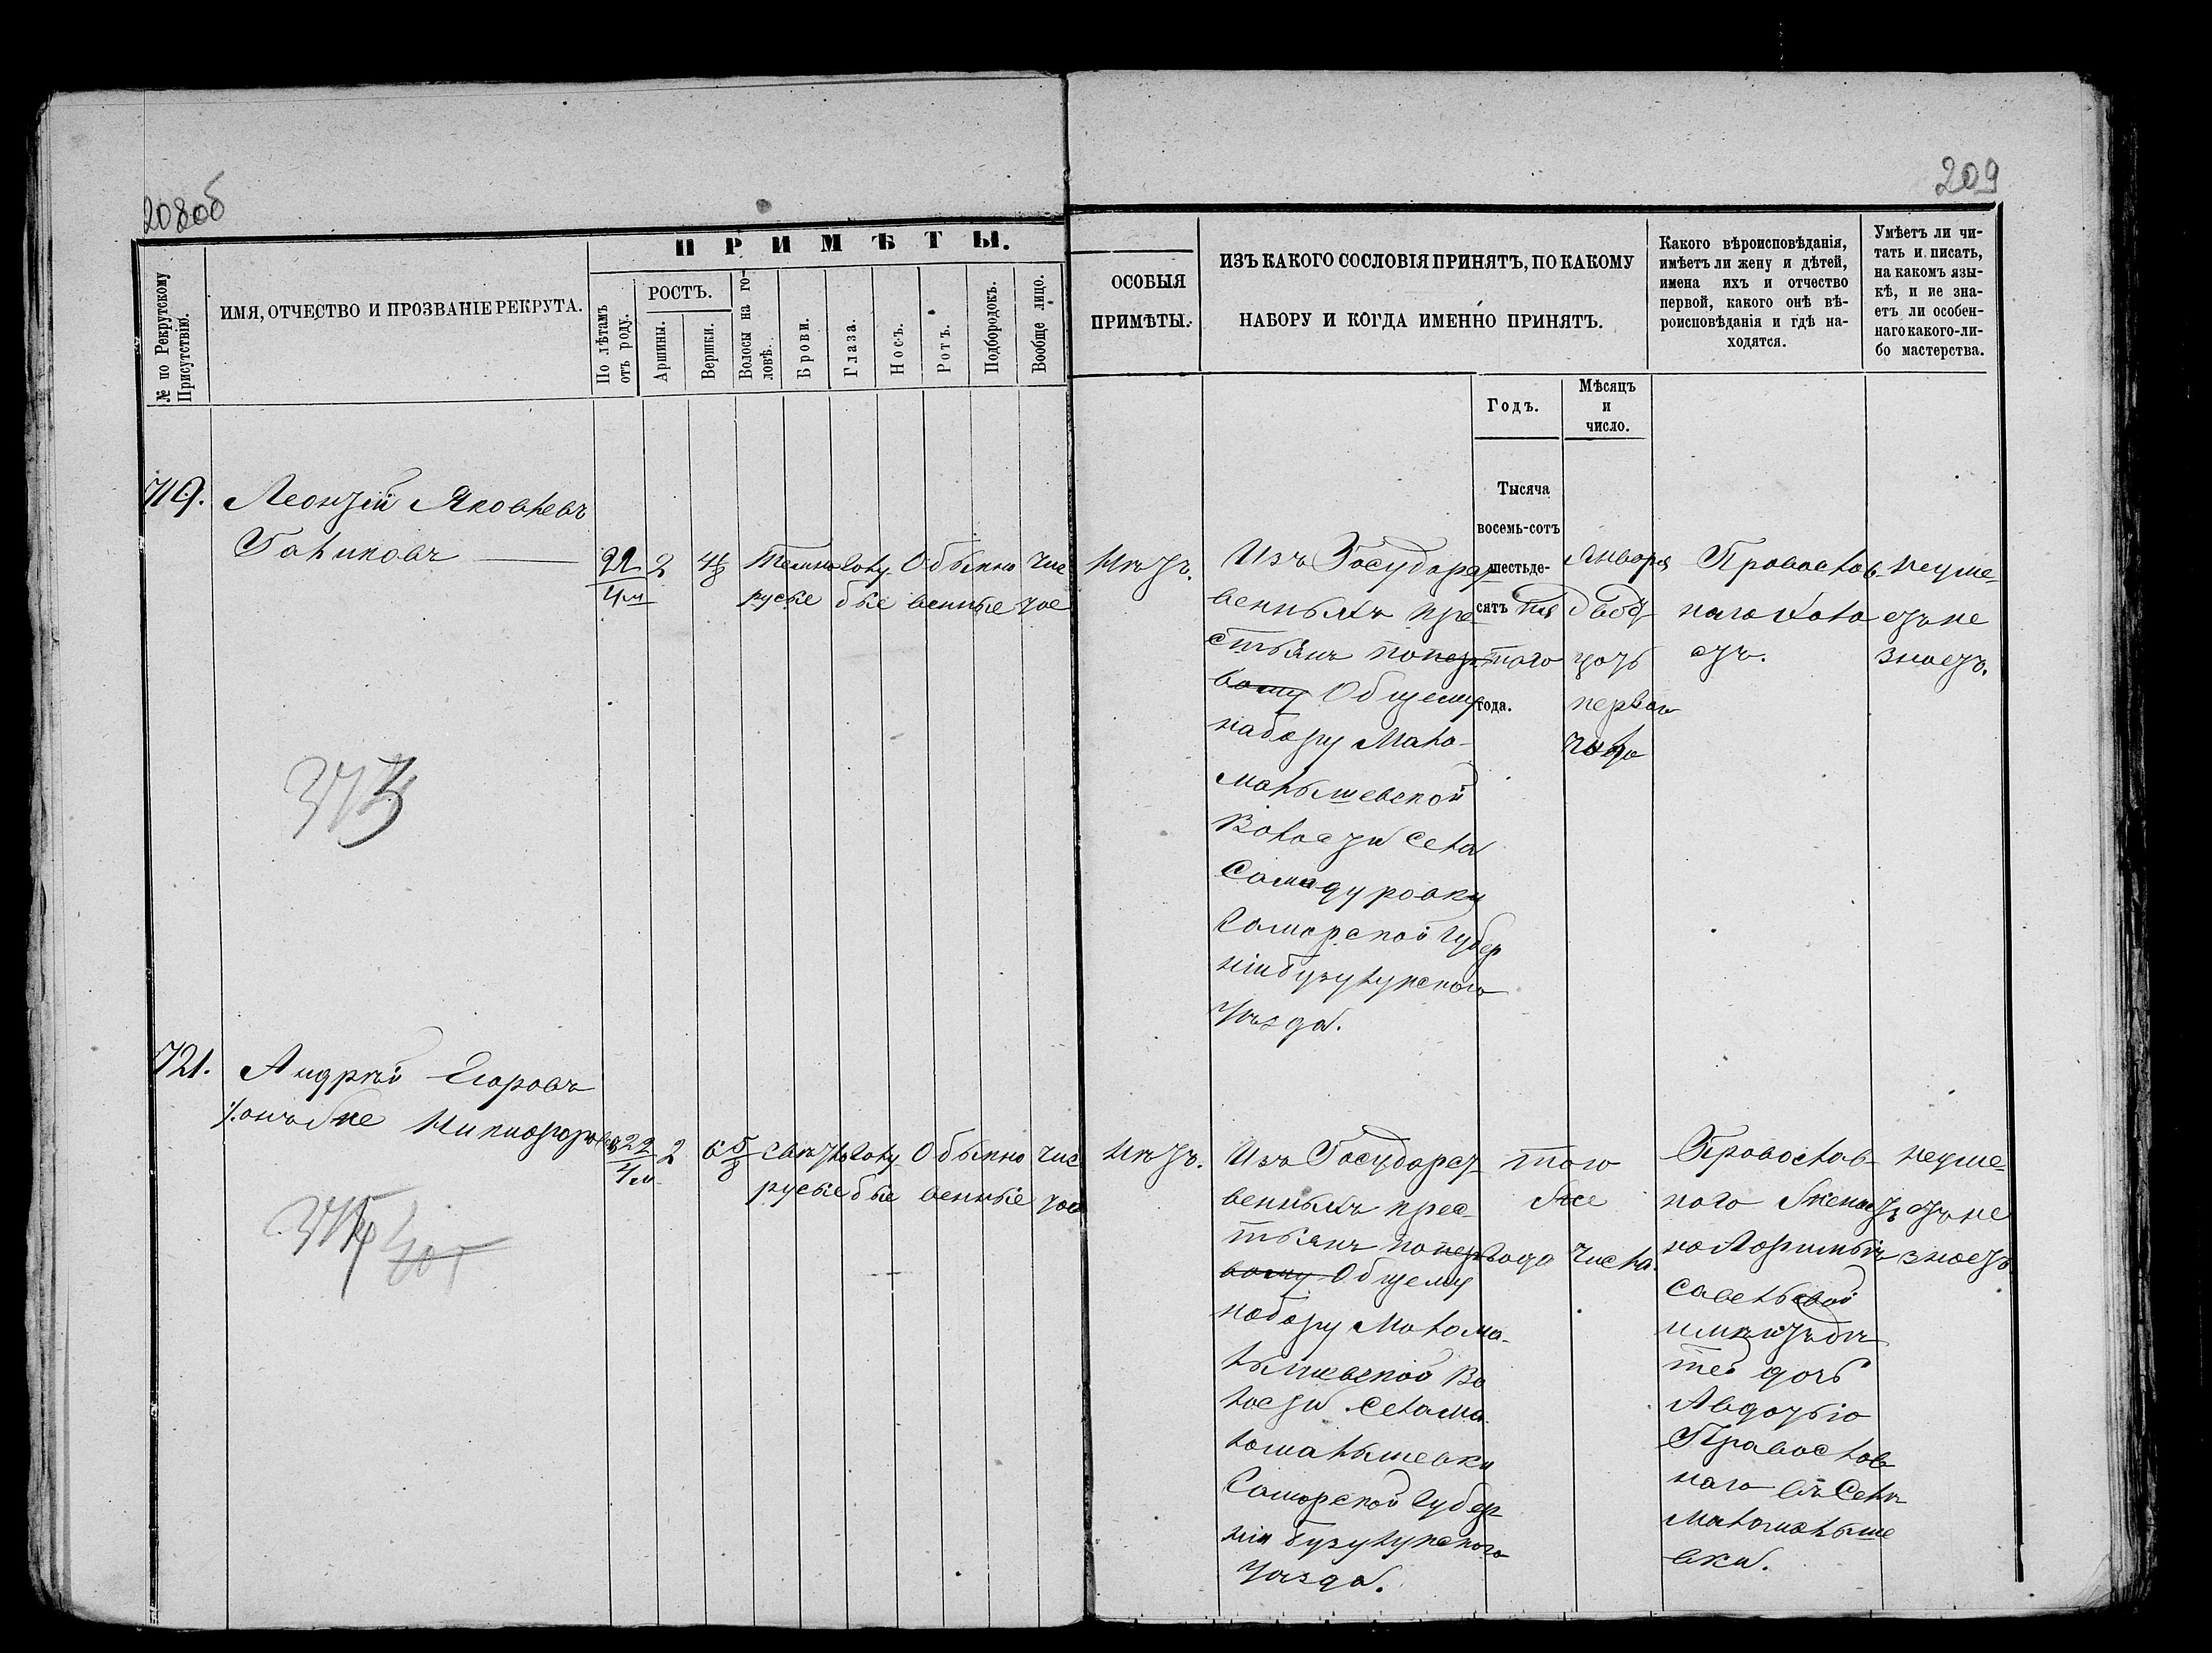 208об
209
ПРИМѢТЫ.
№ по Рекрутскому Присутствію.
ИМЯ, ОТЧЕСТВО И ПРОЗВАНІЕ РЕКРУТА.
По лѣтамъ отъ роду.
РОСТЪ.
Аршины.
Вершки.
Волосы на го-
ловѣ.
Брови.
Глаза.
Носъ.
Ротъ.
Подбородокъ.
Вообще лицо.
ОСОБЫЯ
ПРИМѢТЫ.
ИЗЪ КАКОГО СОСЛОВІЯ ПРИНЯТЪ, ПО КАКОМУ
НАБОРУ И КОГДА ИМЕННО ПРИНЯТЪ.
Какого вѣроисповѣданія,
имѣетъ ли жену и дѣтей,
имена ихъ и отчество
первой, какого онѣ вѣ-
роисповѣданія и гдѣ на-
ходятся.
Умѣетъ ли чи-
тать и писать,
на какомъ язы-
кѣ, и не зна-
етъ ли особен-
наго какого-ли-
бо мастерства.
Годъ.
Мѣсяцъ
и
число.
719.
Леонтій Яковлевъ
22
4м
2
4/8
Темно
русые
голу
бые
Обыкно
венные
чис
тое
Нѣтъ.
Изъ Государст
венныхъ кре
стьянъ по пер
вому Общему
набору Мало-
малышевской
Волости села
Самодуровки
Самарской Губер
ніи Бузулукского
Уѣзда.
Тысяча
восемь-сотъ
шестьде-
сятъ
того
года.
Января
двад
цать
перваго
числа
Православ-
наго холо
стъ.
Неуме-
етъ не
знаетъ.
373
721.
Андрей Егоровъ
онъ же Никифоровъ
22
4м
2
6 5/8
свѣтло
русые
голу
бые
Обыкно
венные
чис
тое
Нѣтъ.
Изъ Государст
венныхъ крес-
тьянъ по пер
вому Общему
набору Малома-
лышевской Во
лости Села Ма
ломалышевки
Самарской Губер
ніи Бузулукского
Уѣзда.
того
же
года
числа.
Православ-
наго женатъ
на
Савельевой
имѣетъ дѣ
тей дочь
Авдотью
Православ
наго въ Селѣ
Маломалыше
вки.
Неуме-
етъ не
знаетъ